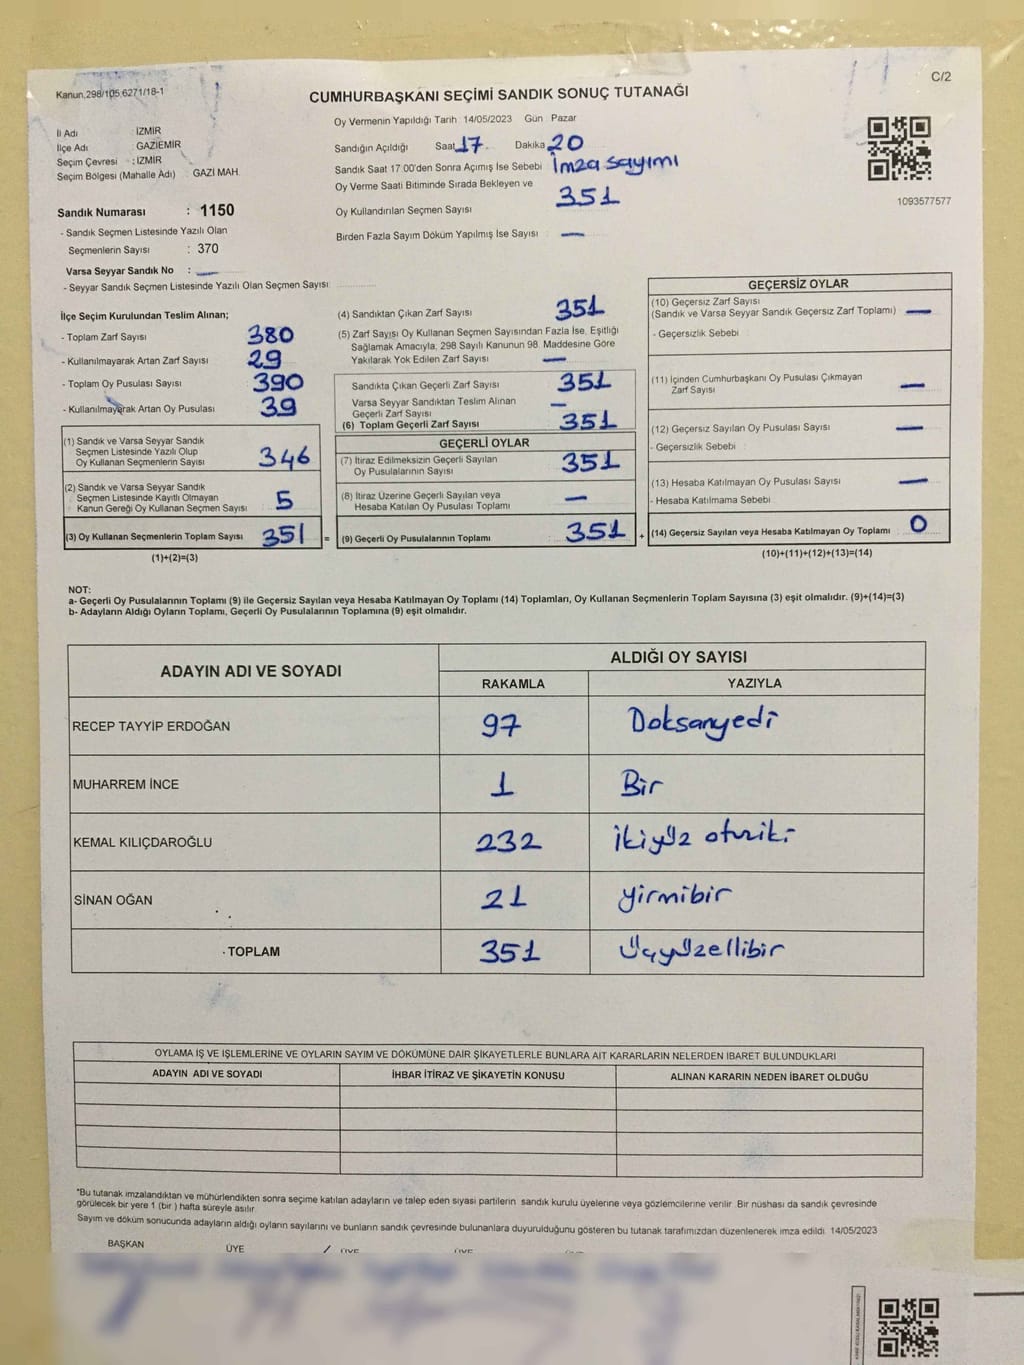 Kanun.298/105,6271/18-1
C/2
CUMHURBAŞKANI SEÇİMİ SANDIK SONUÇ TUTANAĞI
Oy Vermenin Yapıldığı Tarih 14/05/2023 Gün Pazar
İl Adı İZMİR
İlçe Adı GAZİEMİR
Seçim Çevresi : İZMİR
Seçim Bölgesi (Mahalle Adı) GAZİ MAH.
Sandığın Açıldığı Saat 17 Dakika 20
Sandık Saat 17:00'den Sonra Açımış İse Sebebi İmza sayımı
Oy Verme Saati Bitiminde Sırada Bekleyen ve
Oy Kullandırılan Seçmen Sayısı 351
Birden Fazla Sayım Döküm Yapılmış İse Sayısı —
1093577577
Sandık Numarası : 1150
- Sandık Seçmen Listesinde Yazılı Olan
Seçmenlerin Sayısı : 370
Varsa Seyyar Sandık No : —
- Seyyar Sandık Seçmen Listesinde Yazılı Olan Seçmen Sayısı
İlçe Seçim Kurulundan Teslim Alınan;
- Toplam Zarf Sayısı 380
- Kullanılmayarak Artan Zarf Sayısı 29
- Toplam Oy Pusulası Sayısı 390
- Kullanılmayarak Artan Oy Pusulası 39
(1) Sandık ve Varsa Seyyar Sandık
Seçmen Listesinde Yazılı Olup
Oy Kullanan Seçmenlerin Sayısı 346
(2) Sandık ve Varsa Seyyar Sandık
Seçmen Listesinde Kayıtlı Olmayan
Kanun Gereği Oy Kullanan Seçmen Sayısı 5
(3) Oy Kullanan Seçmenlerin Toplam Sayısı 351 =
(1)+(2)=(3)
(4) Sandıktan Çıkan Zarf Sayısı 351
(5) Zarf Sayısı Oy Kullanan Seçmen Sayısından Fazla İse, Eşitliği
Sağlamak Amacıyla, 298 Sayılı Kanunun 98. Maddesine Göre
Yakılarak Yok Edilen Zarf Sayısı —
Sandıkta Çıkan Geçerli Zarf Sayısı 351
Varsa Seyyar Sandıktan Teslim Alınan
Geçerli Zarf Sayısı —
(6) Toplam Geçerli Zarf Sayısı 351
GEÇERLİ OYLAR
(7) İtiraz Edilmeksizin Geçerli Sayılan
Oy Pusulalarının Sayısı 351
(8) İtiraz Üzerine Geçerli Sayılan veya
Hesaba Katılan Oy Pusulası Toplamı —
(9) Geçerli Oy Pusulalarının Toplamı 351 +
GEÇERSİZ OYLAR
(10) Geçersiz Zarf Sayısı
(Sandık ve Varsa Seyyar Sandık Geçersiz Zarf Toplamı) —
- Geçersizlik Sebebi
(11) İçinden Cumhurbaşkanı Oy Pusulası Çıkmayan
Zarf Sayısı —
(12) Geçersiz Sayılan Oy Pusulası Sayısı —
- Geçersizlik Sebebi
(13) Hesaba Katılmayan Oy Pusulası Sayısı —
- Hesaba Katılmama Sebebi
(14) Geçersiz Sayılan veya Hesaba Katılmayan Oy Toplamı 0
(10)+(11)+(12)+(13)=(14)
NOT:
a- Geçerli Oy Pusulalarının Toplamı (9) ile Geçersiz Sayılan veya Hesaba Katılmayan Oy Toplamı (14) Toplamları, Oy Kullanan Seçmenlerin Toplam Sayısına (3) eşit olmalıdır. (9)+(14)=(3)
b- Adayların Aldığı Oyların Toplamı, Geçerli Oy Pusulalarının Toplamına (9) eşit olmalıdır.
ADAYIN ADI VE SOYADI
ALDIĞI OY SAYISI
RAKAMLA YAZIYLA
RECEP TAYYİP ERDOĞAN 97 Doksanyedi
MUHARREM İNCE 1 Bir
KEMAL KILIÇDAROĞLU 232 İkiyüz otuziki
SİNAN OĞAN 21 yirmibir
TOPLAM 351 Üçyüzellibir
OYLAMA İŞ VE İŞLEMLERİNE VE OYLARIN SAYIM VE DÖKÜMÜNE DAİR ŞİKAYETLERLE BUNLARA AİT KARARLARIN NELERDEN İBARET BULUNDUKLARI
ADAYIN ADI VE SOYADI İHBAR İTİRAZ VE ŞİKAYETİN KONUSU ALINAN KARARIN NEDEN İBARET OLDUĞU
*Bu tutanak imzalandıktan ve mühürlendikten sonra seçime katılan adayların ve talep eden siyasi partilerin sandık kurulu üyelerine veya gözlemcilerine verilir. Bir nüshası da sandık çevresinde
görülecek bir yere 1 (bir ) hafta süreyle asılır.
Sayım ve döküm sonucunda adayların aldığı oyların sayılarını ve bunların sandık çevresinde bulunanlara duyurulduğunu gösteren bu tutanak tarafımızdan düzenlenerek imza edildi. 14/05/2023
BAŞKAN ÜYE ÜYE ÜYE